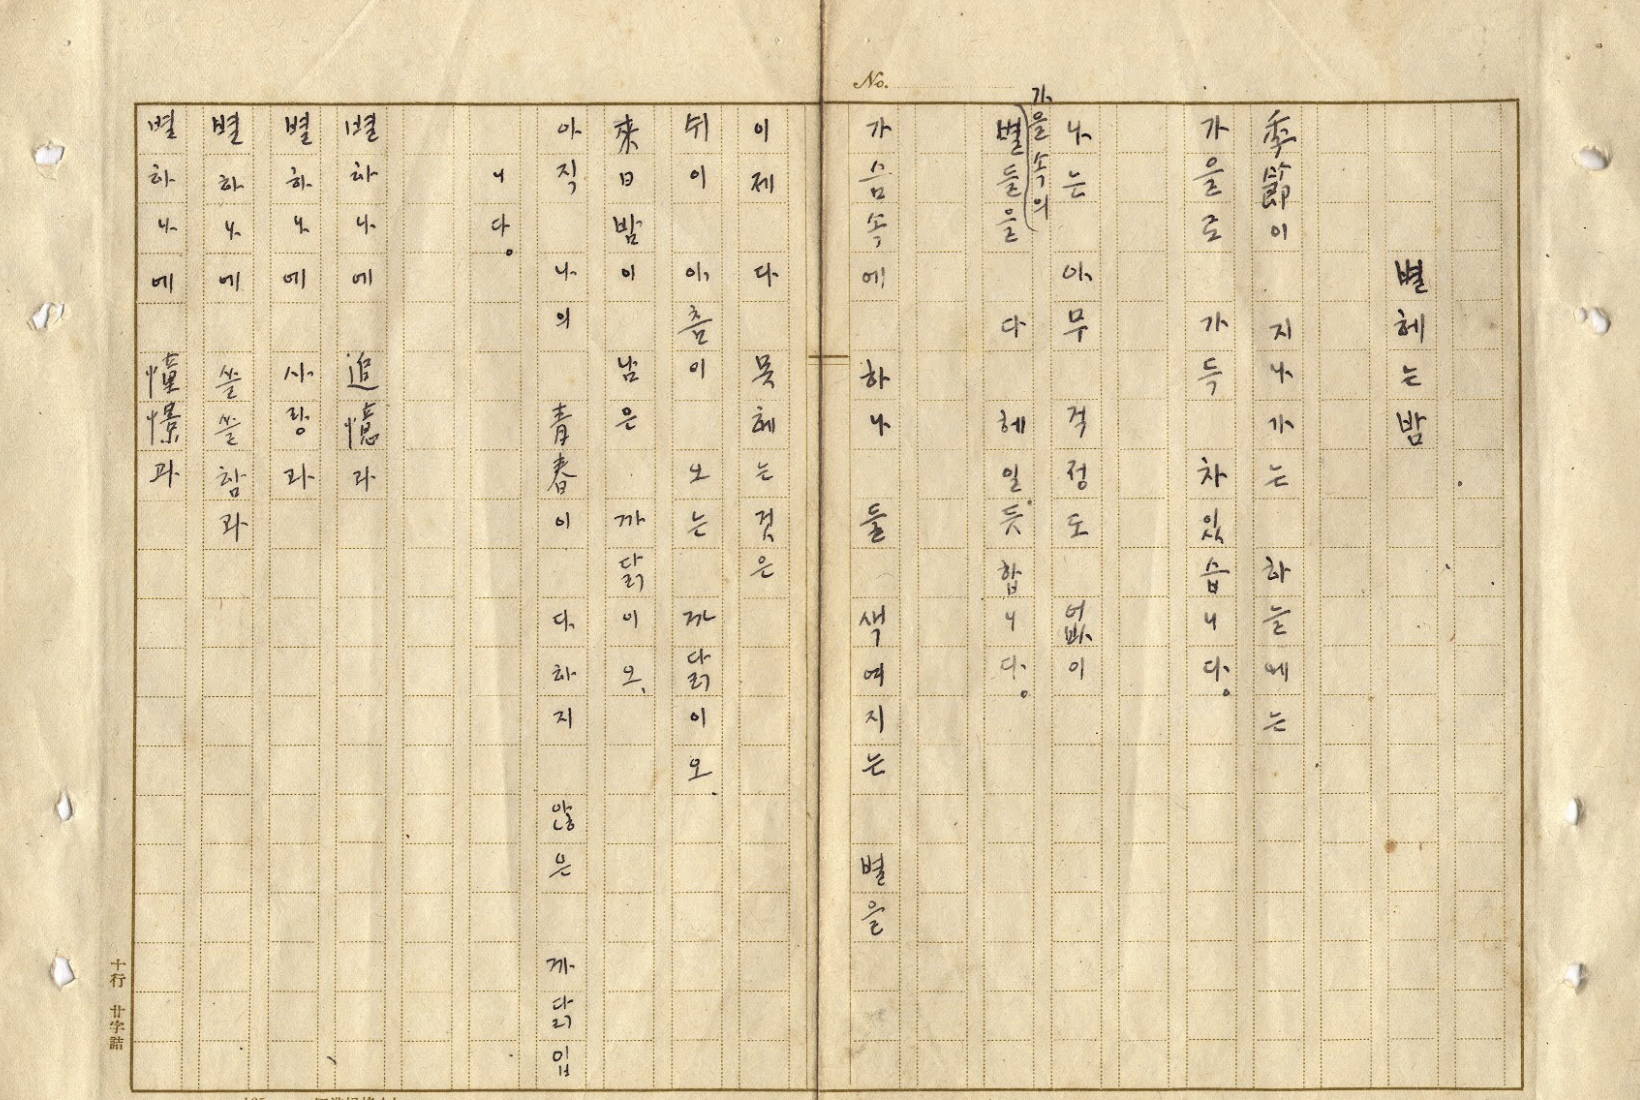 No.
별헤는밤
季節이 지나가는 하늘에는
가을로 가득 차있습니다。
나는 아무 걱정도 없이
가을속의
별들을 다 헤일듯합니다。
가슴속에 하나 둘 색여지는 별을
이제 다 못헤는것은
쉬이 아츰이 오는 까닭이오、
來日밤이 남은 까닭이오、
아직 나의 青春이 다하지 않은 까닭입
니다。
별하나에 追憶과
별하나에 사랑과
별하나에 쓸쓸함과
별하나에 憧憬과
十行 廿字詰